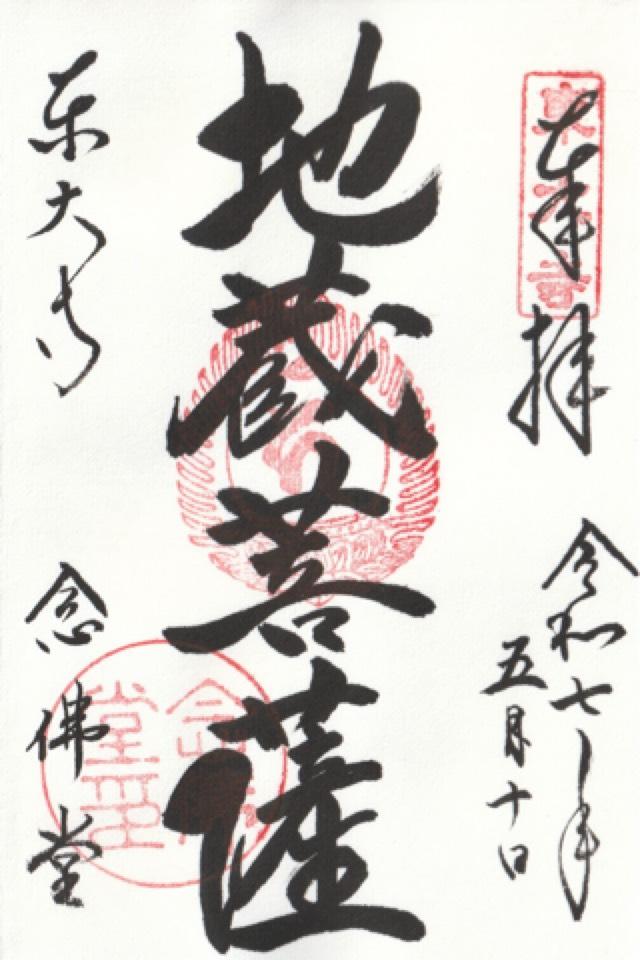 奉拝
令和七年
五月十日
地蔵菩薩
東大寺
念佛堂